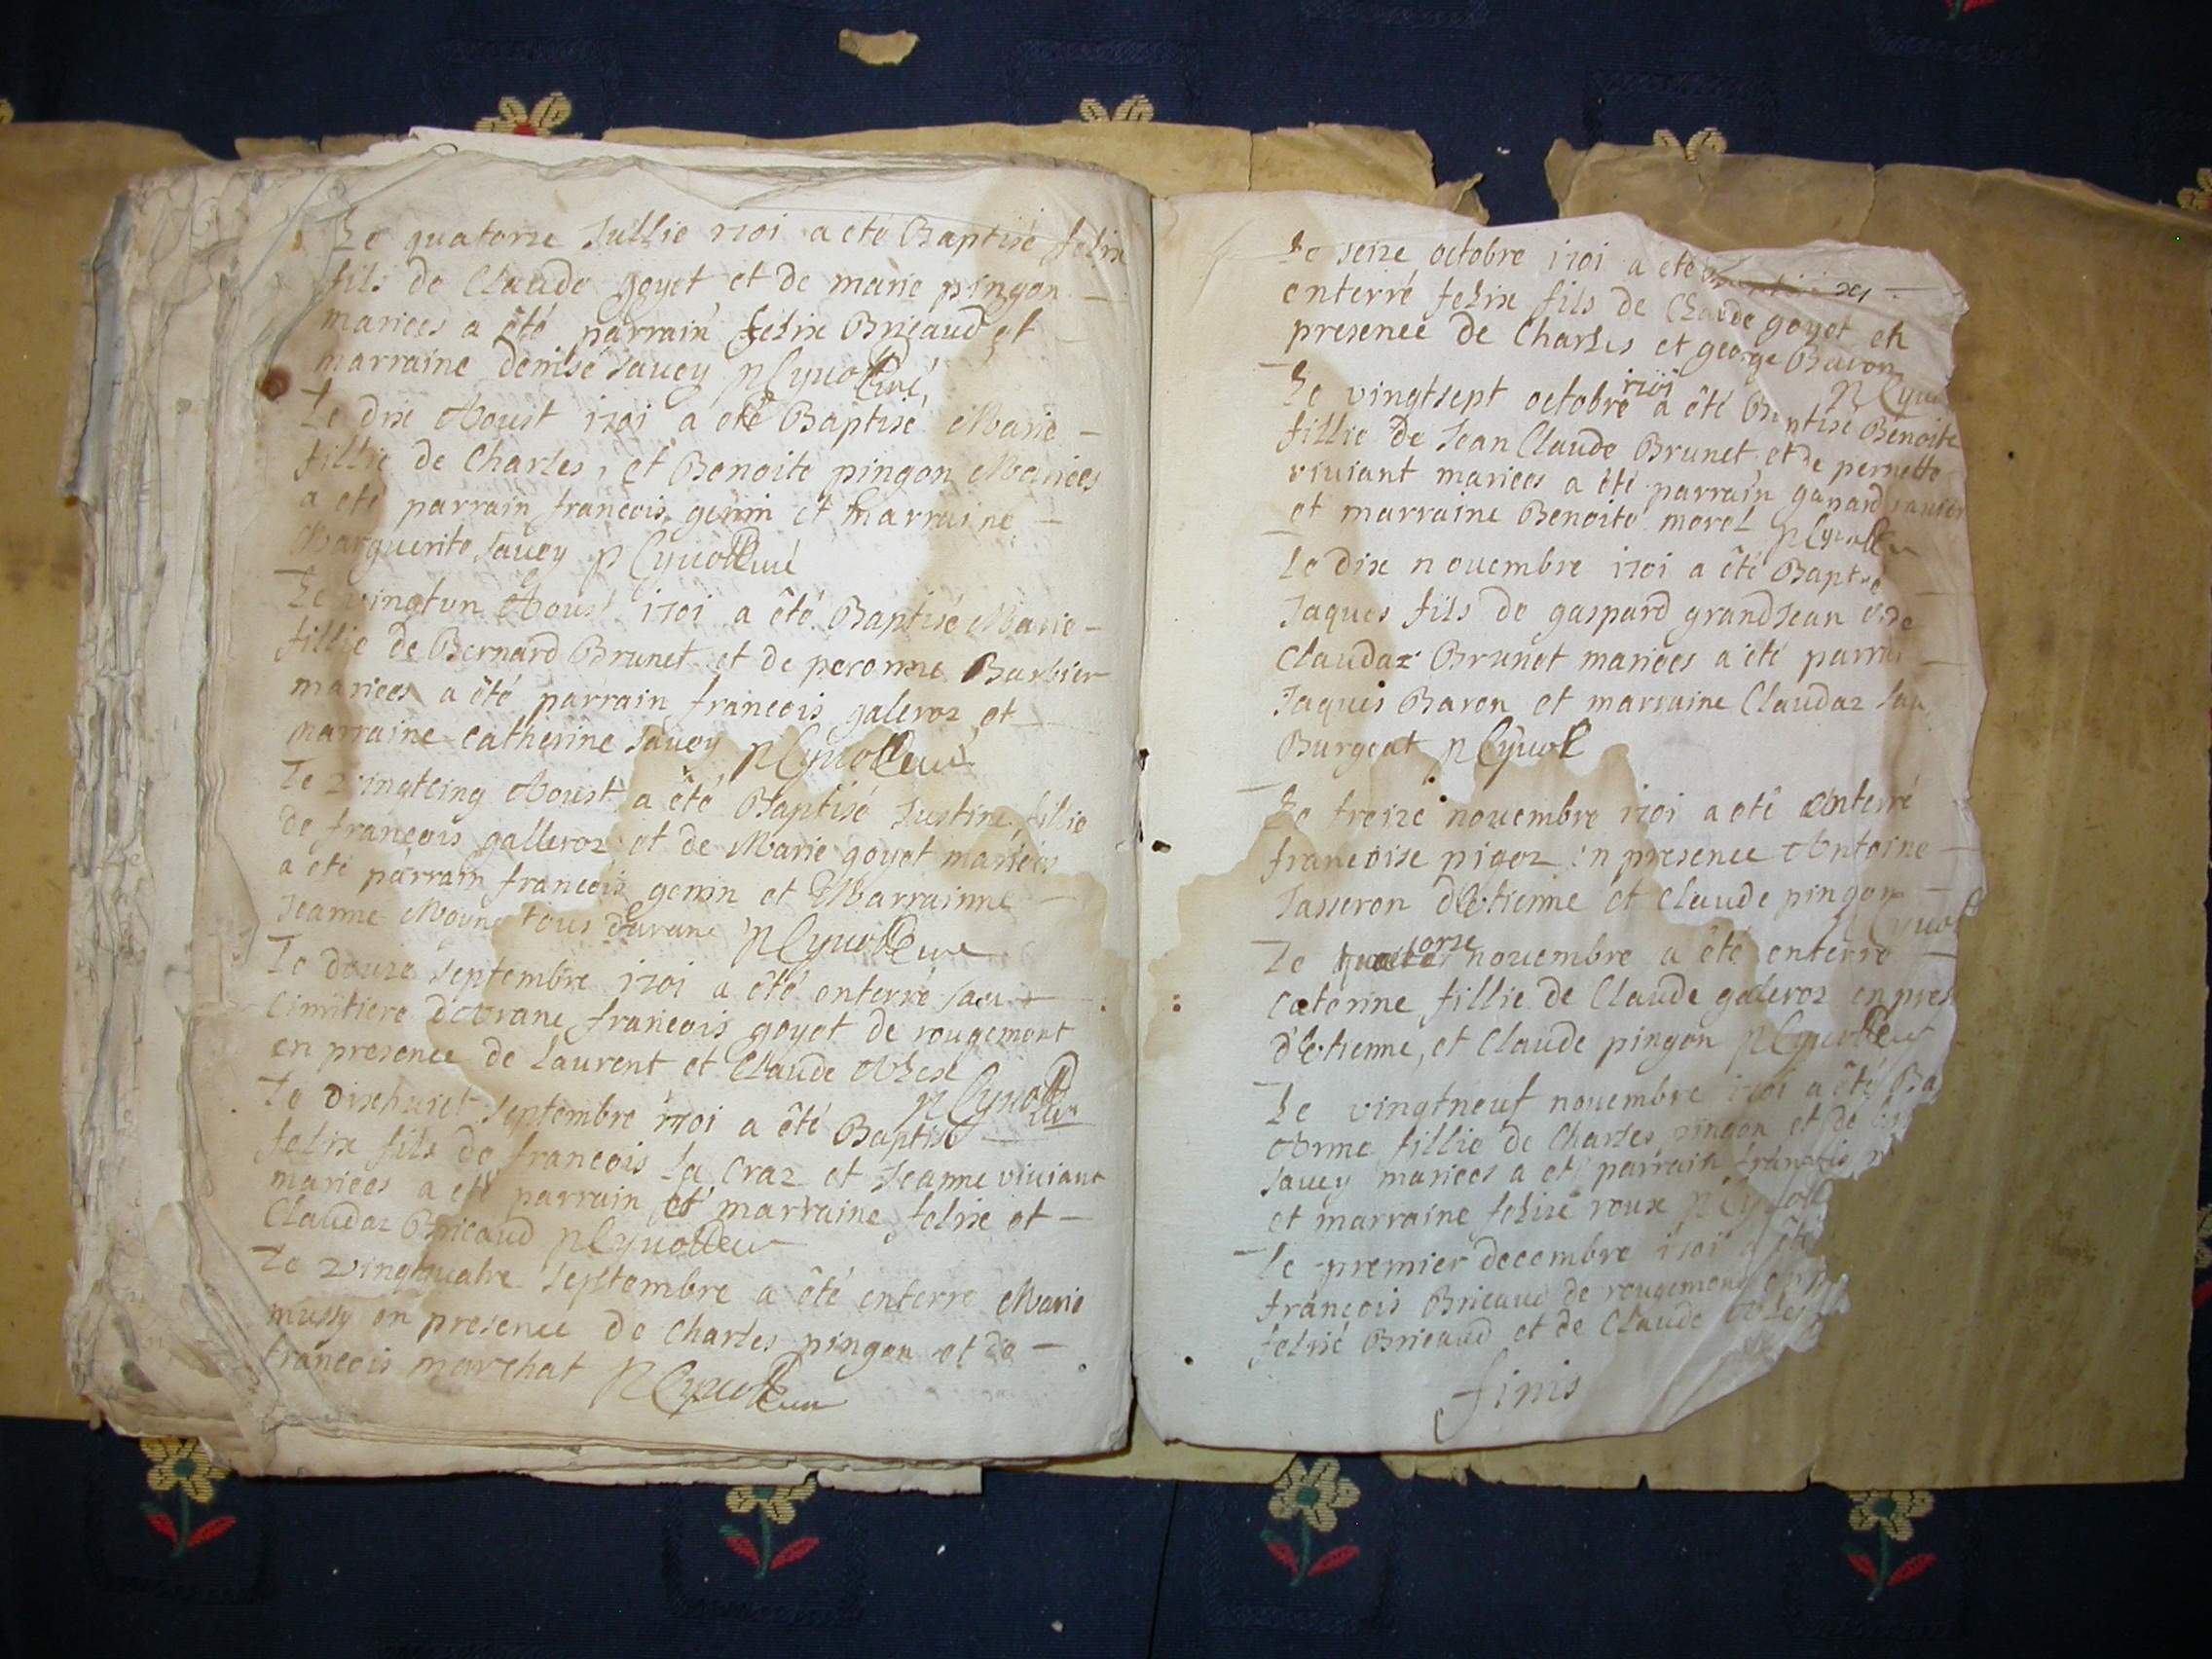 Le quatorze Jullie 1701 a eté Baptisé felix
fils de Claude goyet et de marie pingon
mariees a êté parrain felix Bricaud et
marraine denise sauey p Cyuot
Curé
Le dix Aoust 1701 a eté Baptisé Marie
fillie de Charles, et Benoite pingon Mariees
a eté parrain francois genin et marraine
Marguerite sauey p Cyuot Curé
Le vingtun Aoust 1701 a êté Baptisé Marie
fillie de Bernard Brunet et de peronne Barbier
mariees a êté parrain francois galeroz et
marraine catherine sauey p Cyuot Curé
Le vingtcinq Aoust a êté Baptisé Justine fillie
de francois galleroz et de Marie goyet mariees
a eté parrain francois genin et Marrainne
Jeanne Moyne tous
p Cyuot Cure
Le douze septembre 1701 a êté enterré
Cimitiere francois goyet de rougemont
en presence de Laurent et Claude
p Cyuot
Cur
Le dixhuict septembre 1701 a êté Baptisé
felix fils de francois la Craz et Jeanne viuiant
mariees a eté parrain et marraine felix et
Claudaz Bricaud p Cyuot Cur
Le vingtquatre septembre a êté enterre Marie
mussy en presence de Charles pingon et de
francois marchat p Cyuot Cure
Le seize octobre 1701 a eté
enterré felix fils de Claude goyet en
presence de Charles et george Bavon
p Cyuot
Le vingtsept octobre 1701 a êté Baptisé Benoite
fillie de Jean Claude Brunet et de pernette
viuiant mariees a êté parrain
et marraine Benoite morel p Cyuot Cu
Le dix nouembre 1701 a êté Baptisé
Jaques fils de gaspard grandJean et de
Claudaz Brunet mariees a êté parrai
Jaques Baron et marraine Claudaz
Burgeat p Cyuot
Le treize nouembre 1701 a eté enterré
francoise pigoz en presence Antoine
Jasseron d'Etienne et Claude pingon
Cyuot
Le quatorze nouembre a êté enterre
Caterine fillie de Claude galeroz en pres
d'Etienne, et Claude pingon p Cyuot Cu
Le vingtneuf nouembre 1701 a êté Ba
Anne fillie de Charles pingon et de
sauey mariees a eté parrain francois
et marraine felixe roux p Cyuot
Le premier decembre 1701 a êté
francois Bricaud de rougemont en
felix Bricaud et de Claude
finis